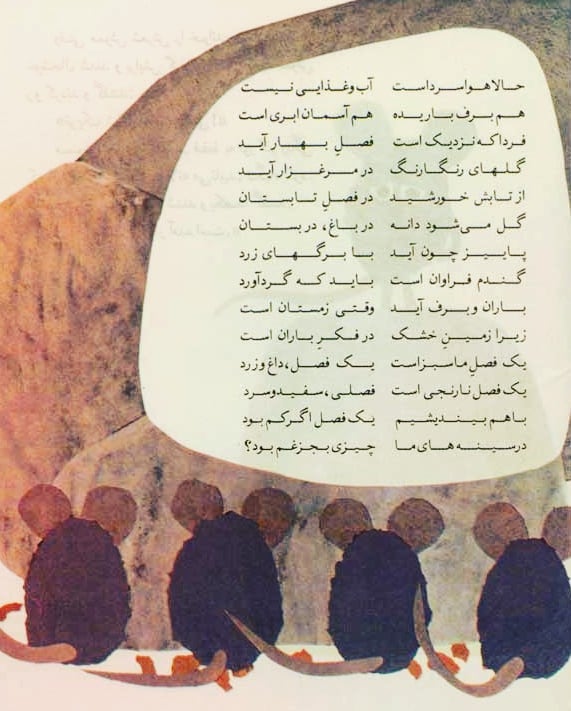 حالا هوا سرد است آب و غذایی نیست
هم برف باریده هم آسمان ابری است
فردا که نزدیک است فصلِ بهار آید
گلهای رنگارنگ در مرغزار آید
از تابش خورشید در فصلِ تابستان
گل می‌شود دانه در باغ، در بستان
پاییز چون آید با برگهای زرد
گندم فراوان است باید که گردآورد
باران و برف آید وقتی زمستان است
زیرا زمینِ خشک در فکرِ باران است
یک فصلِ ما سبز است یک فصل، داغ و زرد
یک فصل نارنجی است فصلی، سفید و سرد
با هم بیندیشیم یک فصل اگر کم بود
در سینه‌های ما چیزی بجز غم بود؟